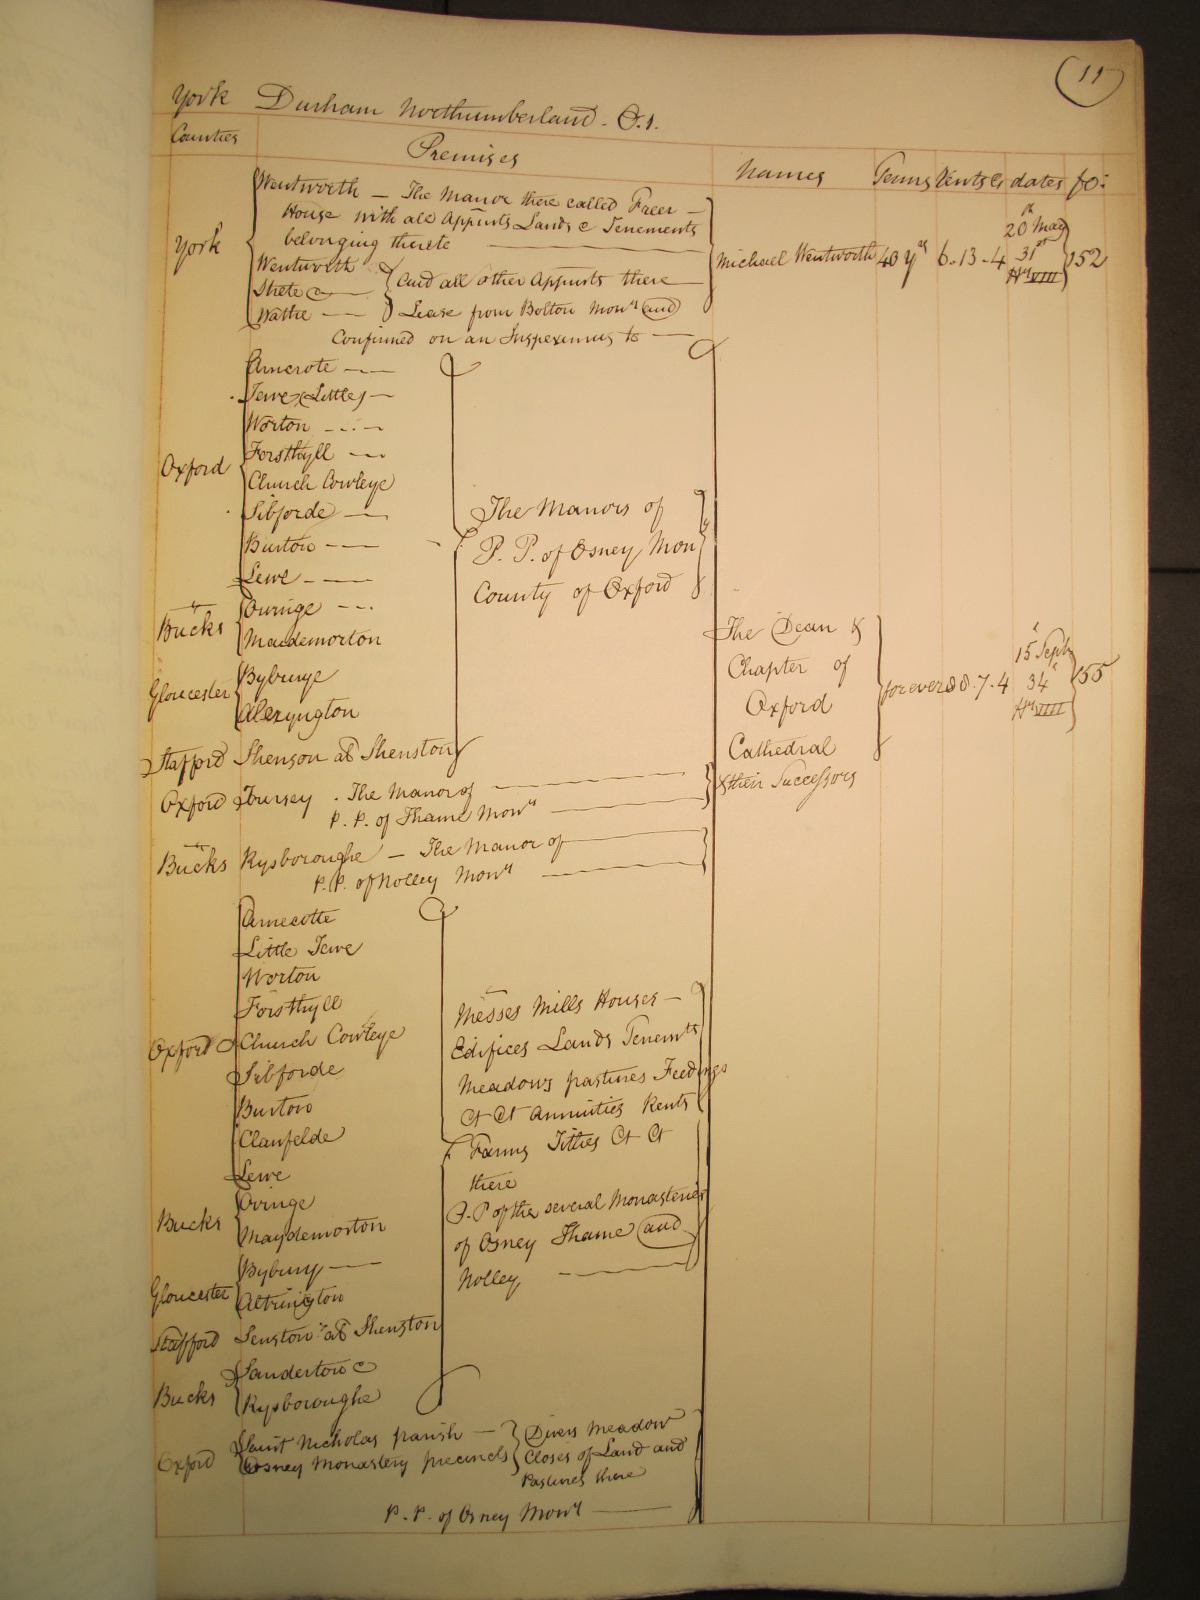 11
York Durham Northumberland - O.1.
Counties Premises Names Terms Rents &c dates fo:
York Wentworth — The Manor there called Freer —
House with all Appurts Lands & Tenements
belonging thereto
Wentworth
Skete &
Wathe — —
And all other Appurts there
Lease from Bolton Mony and
Confirmed on an Inspeximus to —
Michael Wentworth 40 yrs 6-13-4 20th May 31st Hy VIII 152
Oxford
Amcrote — —
Tewe (Little) —
Worton — — —
Forsthyll — —
Church Cowleye
Sibforde — —
Burton — —
Lewe — —
The Manors of
P. P. of Osney Mony
County of Oxford
Bucks
Ouringe — — -
Maidemorton
Gloucester
Byburye
Alezyngton
Stafford Shenson als Shenston
Oxford Toursey . The Manor of
P. P. of Thame Mony
Bucks Rysboroughe — The Manor of
P. P. of Nolley Mony
The Dean &
Chapter of
Oxford
Cathedral
& their Successors
forever 88.7.4 15 Septr 34th Hy VIII 155
Oxford
Amecotte
Little Tewe
Worton
Forsthyll
Church Cowleye
Sibforde
Burton
Clanfelde
Lewe
Bucks
Ovinge
Maydemorton
Gloucester
Bybury — —
Altrington
Stafford Senston als Shenston
Bucks
Sanderton &
Rysboroughe
Messes Mills Houses —
Edifices Lands Tenemts
Meadows pastures Feedings
&c &c Annuities Rents
Farms Tithes &c &c
there
P. P of the several Monasteries
of Osney Thame and
Nolley
Oxford
Saint Nicholas parish —
Osney Monastery precincts
Divers Meadow
Closes of Land and
Pastures there
P. P. of Osney Mony